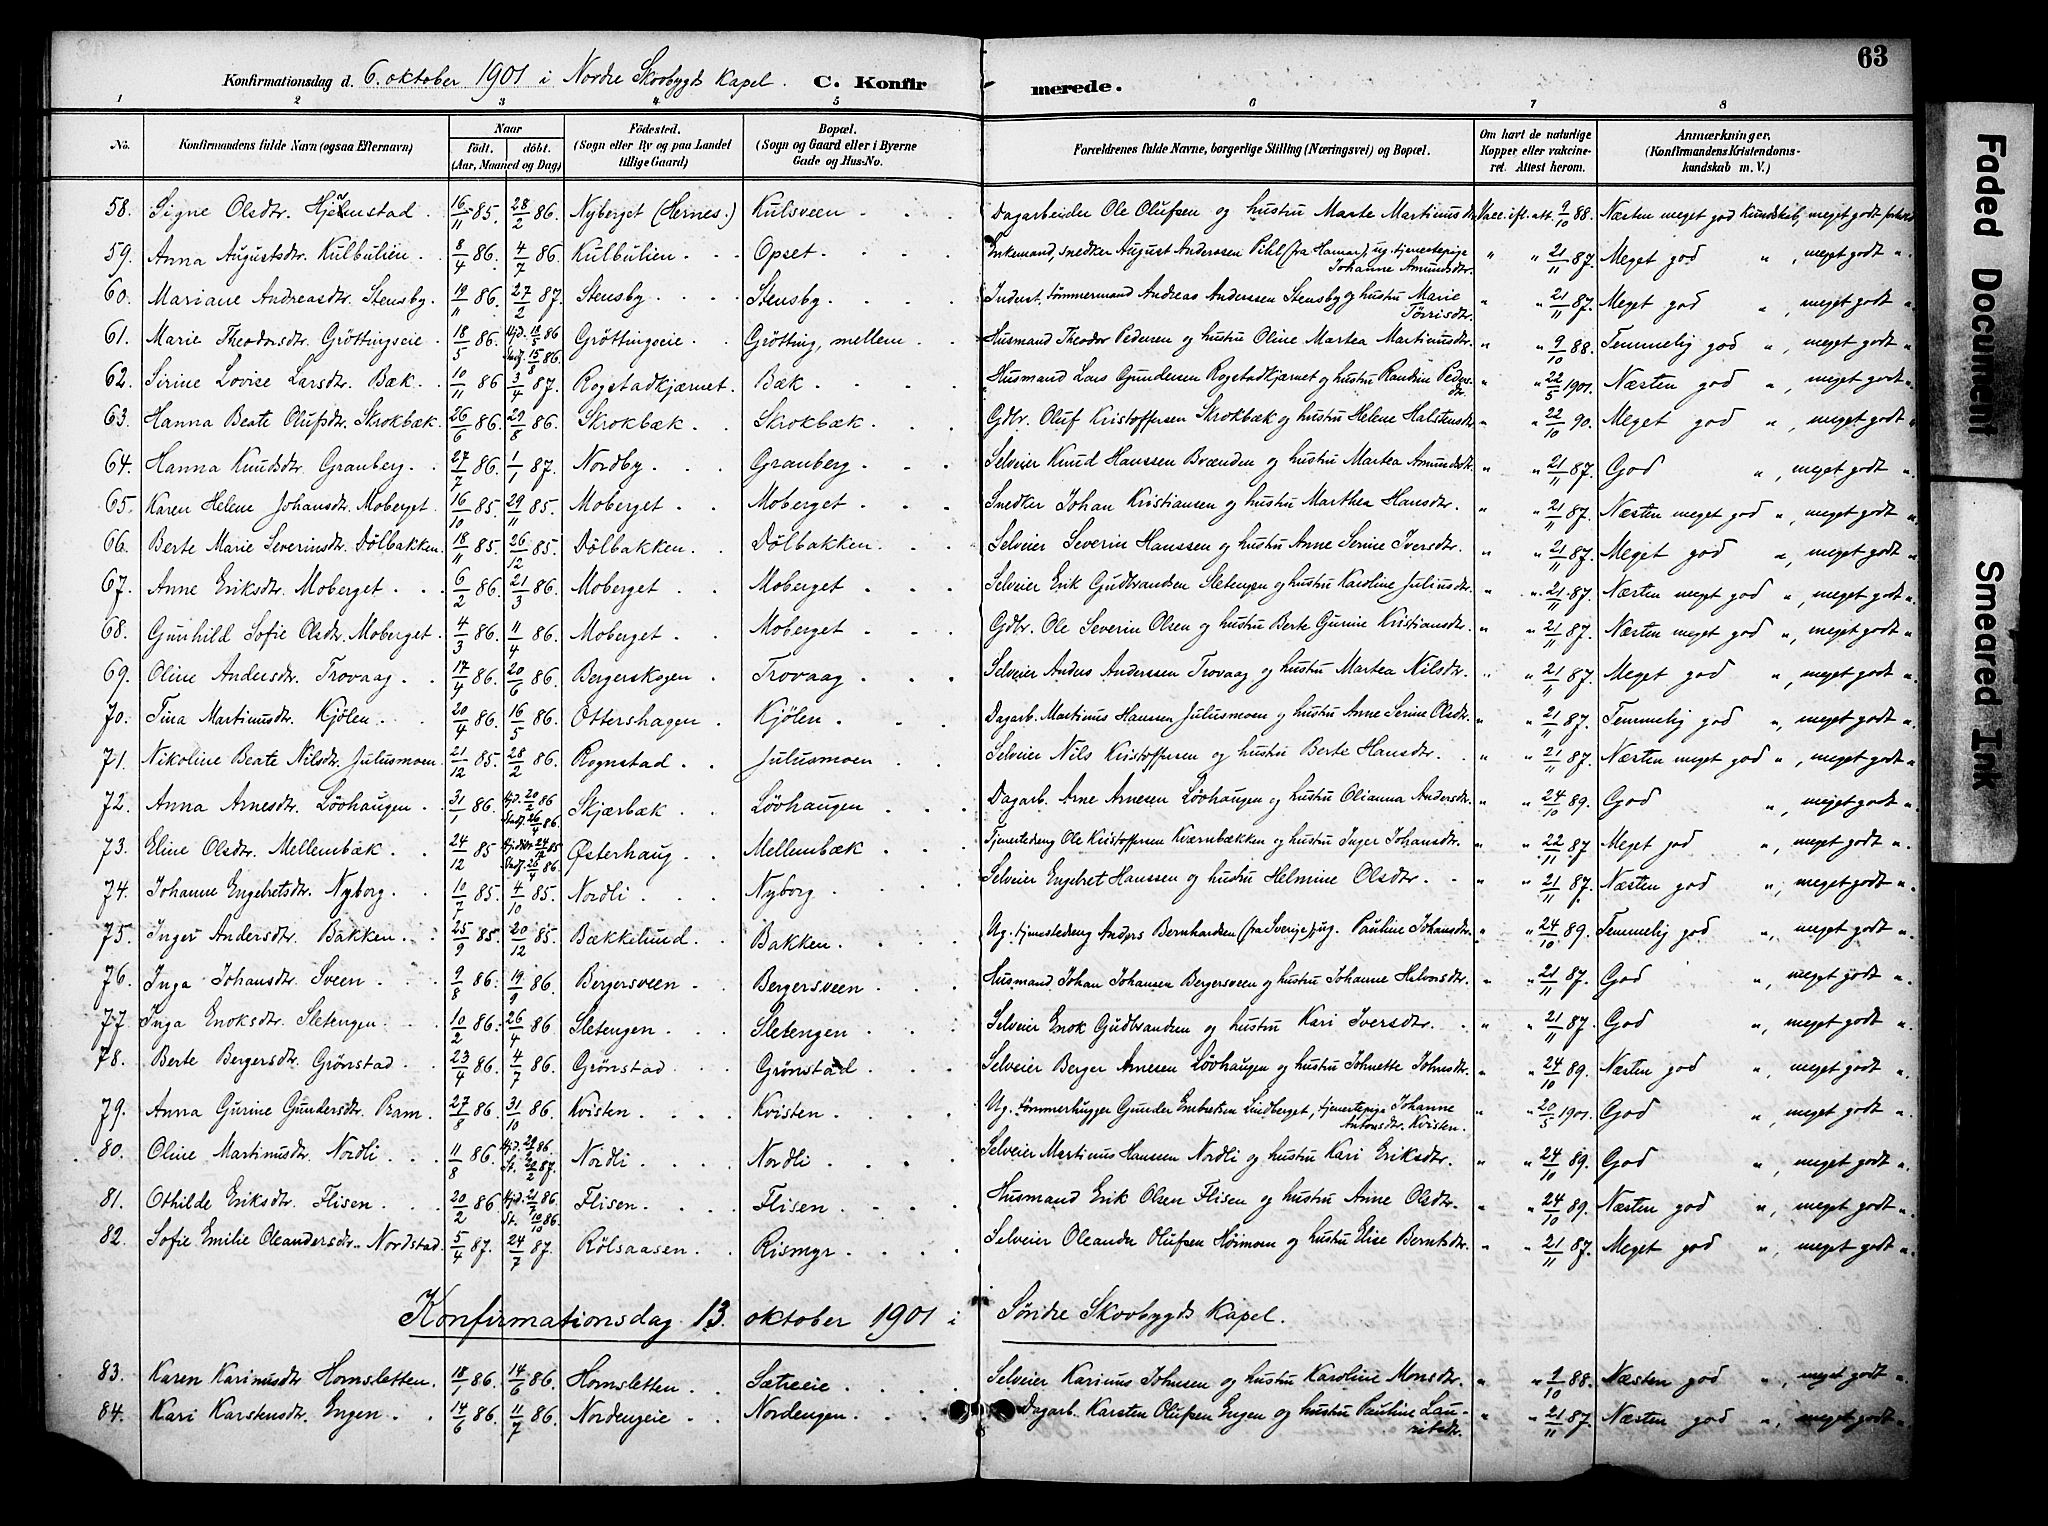 63
Konfirmationsdag d. 6. oktober 1901 i Nordre Skovbygds Kapel. C. Konfirmerede.
1 2 3 4 5 6 7 8
No. Konfirmandens fulde Navn (ogsaa Efternavn) Naar födt. döbt. (Aar, Maaned og Dag) Födested. (Sogn eller By og paa Landet tillige Gaard) Bopæl. (Sogn og Gaard eller i Byerne Gade og Hus-No. Forældrenes fulde Navne, borgerlige Stilling (Næringsvei) og Bopæl. Om havt de naturlige Kopper eller vaccineret. Attest herom. Anmærkninger. (Konfirmandens Kristendomskundskab m. V.)
58. Signe Olsdtr. Hjelmstad. 16/11 85. 28/2 86. Nyberget (Hernes.) Kulsveen Dagarbeider Ole Olufsen og hustru Marte Martinusdtr. Vacc. ifl. att. 9/10 88. Næsten meget god Kundskab, meget godt forhold
59. Anna Augustsdtr. Kulbulien 8/4 86. 4/7 86. Kulbulien Opset Enkemand, snedker August Anderssen Pihl (fra Hamar), ug. tjenestepige Johanne Amundsdtr. " " 21/11 87. Meget god ", meget godt "
60. Mariane Andreasdtr. Stensby 19/11 86. 27/2 87. Stensby Stensby Inderst, tømmermand Andreas Anderssen Stensby og hustru Marie Tørrisdtr. " " 21/11 87. Meget god ", meget godt "
61. Marie Theodorsdtr. Gröttingseie 18/5 86. Hjd. 18/5 86 Stadf. 15/8 86. Gröttingseie Grötting, mellem Husmand Theodor Pedersen og hustru Oline Martea Martinusdtr. " " 9/10 88. Temmelig god ", meget godt "
62. Sirine Lovise Larsdtr. Bæk. 10/11 86 3/4 87. Rogstadkjærnet Bæk Husmand Lars Gundersen Rogstadkjærnet og hustru Randine Pedersdtr. " " 22/5 1901. Næsten god ", meget godt "
63. Hanna Beate Olufsdtr. Skrokbæk 26/6 86. 29/8 86. Skrokbæk Skrokbæk Gdbr. Oluf Kristoffersen Skrokbæk og hustru Helene Halstensdtr. " " 22/10 90. Meget god ", meget godt "
64. Hanna Knudsdtr. Granberg 27/7 86. 1/1 87. Nordby Granberg Selveier Knud Hanssen Brænden og hustru Martea Amundsdtr. " " 21/11 87. God ", meget godt "
65. Karen Helene Johansdtr. Moberget 16/10 85. 29/11 85. Moberget Moberget Snedker Johan Kristiansen og hustru Marthea Hansdtr. " " 21/11 87. Næsten meget god ", meget godt "
66. Berte Marie Severinsdtr. Dölbakken 18/11 85. 26/12 85. Dölbakken Dölbakken Selveier Severin Hanssen og hustru Anne Serine Iversdtr. " " 21/11 87. Meget god ", meget godt "
67. Anne Eriksdtr. Moberget 6/2 86. 21/3 86. Moberget Moberget Selveier Erik Gudbrandsen Sletengen og hustru Karoline Juliusdtr. " " 21/11 87. Næsten meget god ", meget godt "
68. Gunhild Sofie Olsdtr. Moberget 4/3 86. 11/4 86. Moberget Moberget Gdbr. Ole Severin Olsen og hustru Berte Gurine Kristiansdtr. " " 21/11 87. Næsten meget god ", meget godt "
69. Oline Andersdtr. Trovaag 17/4 86. 20/6 86. Bergerskogen Trovaag Selveier Anders Anderssen Trovaag og hustru Martea Nilsdtr. " " 21/11 87. Meget god ", meget godt "
70. Tina Martinusdtr. Kjölen 20/4 86. 16/5 86. Ottershagen Kjölen Dagarb. Martinus Hanssen Julusmoen og hustru Anne Serine Olsdtr. " " 21/11 87. Temmelig god ", meget godt "
71. Nikoline Beate Nilsdtr. Julusmoen 21/12 85. 28/2 86. Rognstad Julusmoen Selveier Nils Kristoffersen og hustru Berte Hansdtr. " " 21/11 87. Næsten meget god ", meget godt "
72. Anna Arnesdtr. Lövhaugen 31/1 86. Hjd. 20/2 86 Stadf. 26/4 86. Skjærbæk Lövhaugen Dagarb. Arne Arnesen Lövhaugen og hustru Olianna Andersdtr. " " 24/10 89. God ", meget godt "
73. Eline Olsdtr. Mellembæk 24/12 85 24/12 85 Stadf. Østerhaug Mellembæk Tjenestedreng Ole Kristoffersen Kværnbækken og hustru Inger Johansdtr. " " 22/11 87 Meget god ", meget godt "
74. Johanne Engebretsdtr. Nyborg 10/7 85. 4/10 85. Nordli Nyborg Selveier Engebret Hanssen og hustru Helmine Olsdtr. " " 21/11 87. Næsten god ", meget godt "
75. Inger Andersdtr. Bakken 25/9 85. 20/12 85. Bækkelund Bakken Ug. tjenestedreng Anders Bernhardsen (fra Sverige), ug. Pauline Johansdtr. " " 24/10 89. Temmelig god ", meget godt "
76. Inga Johansdtr. Sveen 9/8 86. 19/9 86. Bergersveen Bergersveen Husmand Johan Johansen Bergersveen og hustru Johanne Helvorsdtr. " " 21/11 87. God ", meget godt "
77. Inga Enoksdtr. Sletengen 10/2 86. 26/4 86 Sletengen Sletengen Selveier Enok Gudbrandsen og hustru Kari Iversdtr. " " 21/11 87. God ", meget godt "
78. Berte Bergersdtr. Grønstad 23/4 86. 4/7 86. Grønstad Grønstad Selveier Berger Arnesen Lövhaugen og hustru Johnette Johnsdtr. " " 24/10 89. Næsten god ", meget godt "
79. Anna Gurine Gundersdtr. Pram 27/8 86. 31/10 86. Kvisten Kvisten Ug. tømmerhugger Gunder Embretsen Lindberget, tjenestepige Johanne Antonsdtr. Kvisten. " " 20/5 1901. God ", meget godt "
80. Oline Martinusdtr. Nordli 11/8 86. Hjd. 86. St. 22/2 87. Nordli Nordli Selveier Martinus Hanssen Nordli og hustru Kari Eriksdtr. " " 24/10 89. God ", meget godt "
81. Othilde Eriksdtr. Flisen 20/2 86. Hjd. 86. St. 10/10 86. Flisen Flisen Husmand Erik Olsen Flisen og hustru Anne Olsdtr. " " 24/10 89. Næsten god ", meget godt "
82. Sofie Emilie Oleandersdtr. Nordstad 5/4 87. 24/7 87. Rölsaasen Rismyr Selveier Oleander Olufsen Høimoen og hustru Elise Berntsdtr. " " 21/11 87. Meget god ", meget godt "
Konfirmationsdag 13. oktober 1901 i Søndre Skovbygds Kapel.
83. Karen Karinusdtr Hornsletten. 18/1 86. 14/6 86. Hornsletten Sætreeie Selveier Karinus Johnsen og hustru Karoline Monsdtr. " " 9/10 88. Næsten god ", meget godt "
84. Kari Karstensdtr. Engen 14/6 86. 11/7 86. Nordengeie Nordengen Dagarb. Karsten Olufsen Engen og hustru Pauline Lauritsdtr. " " 21/11 87. Næsten god ", meget godt "
Faded Document
Smeared Ink